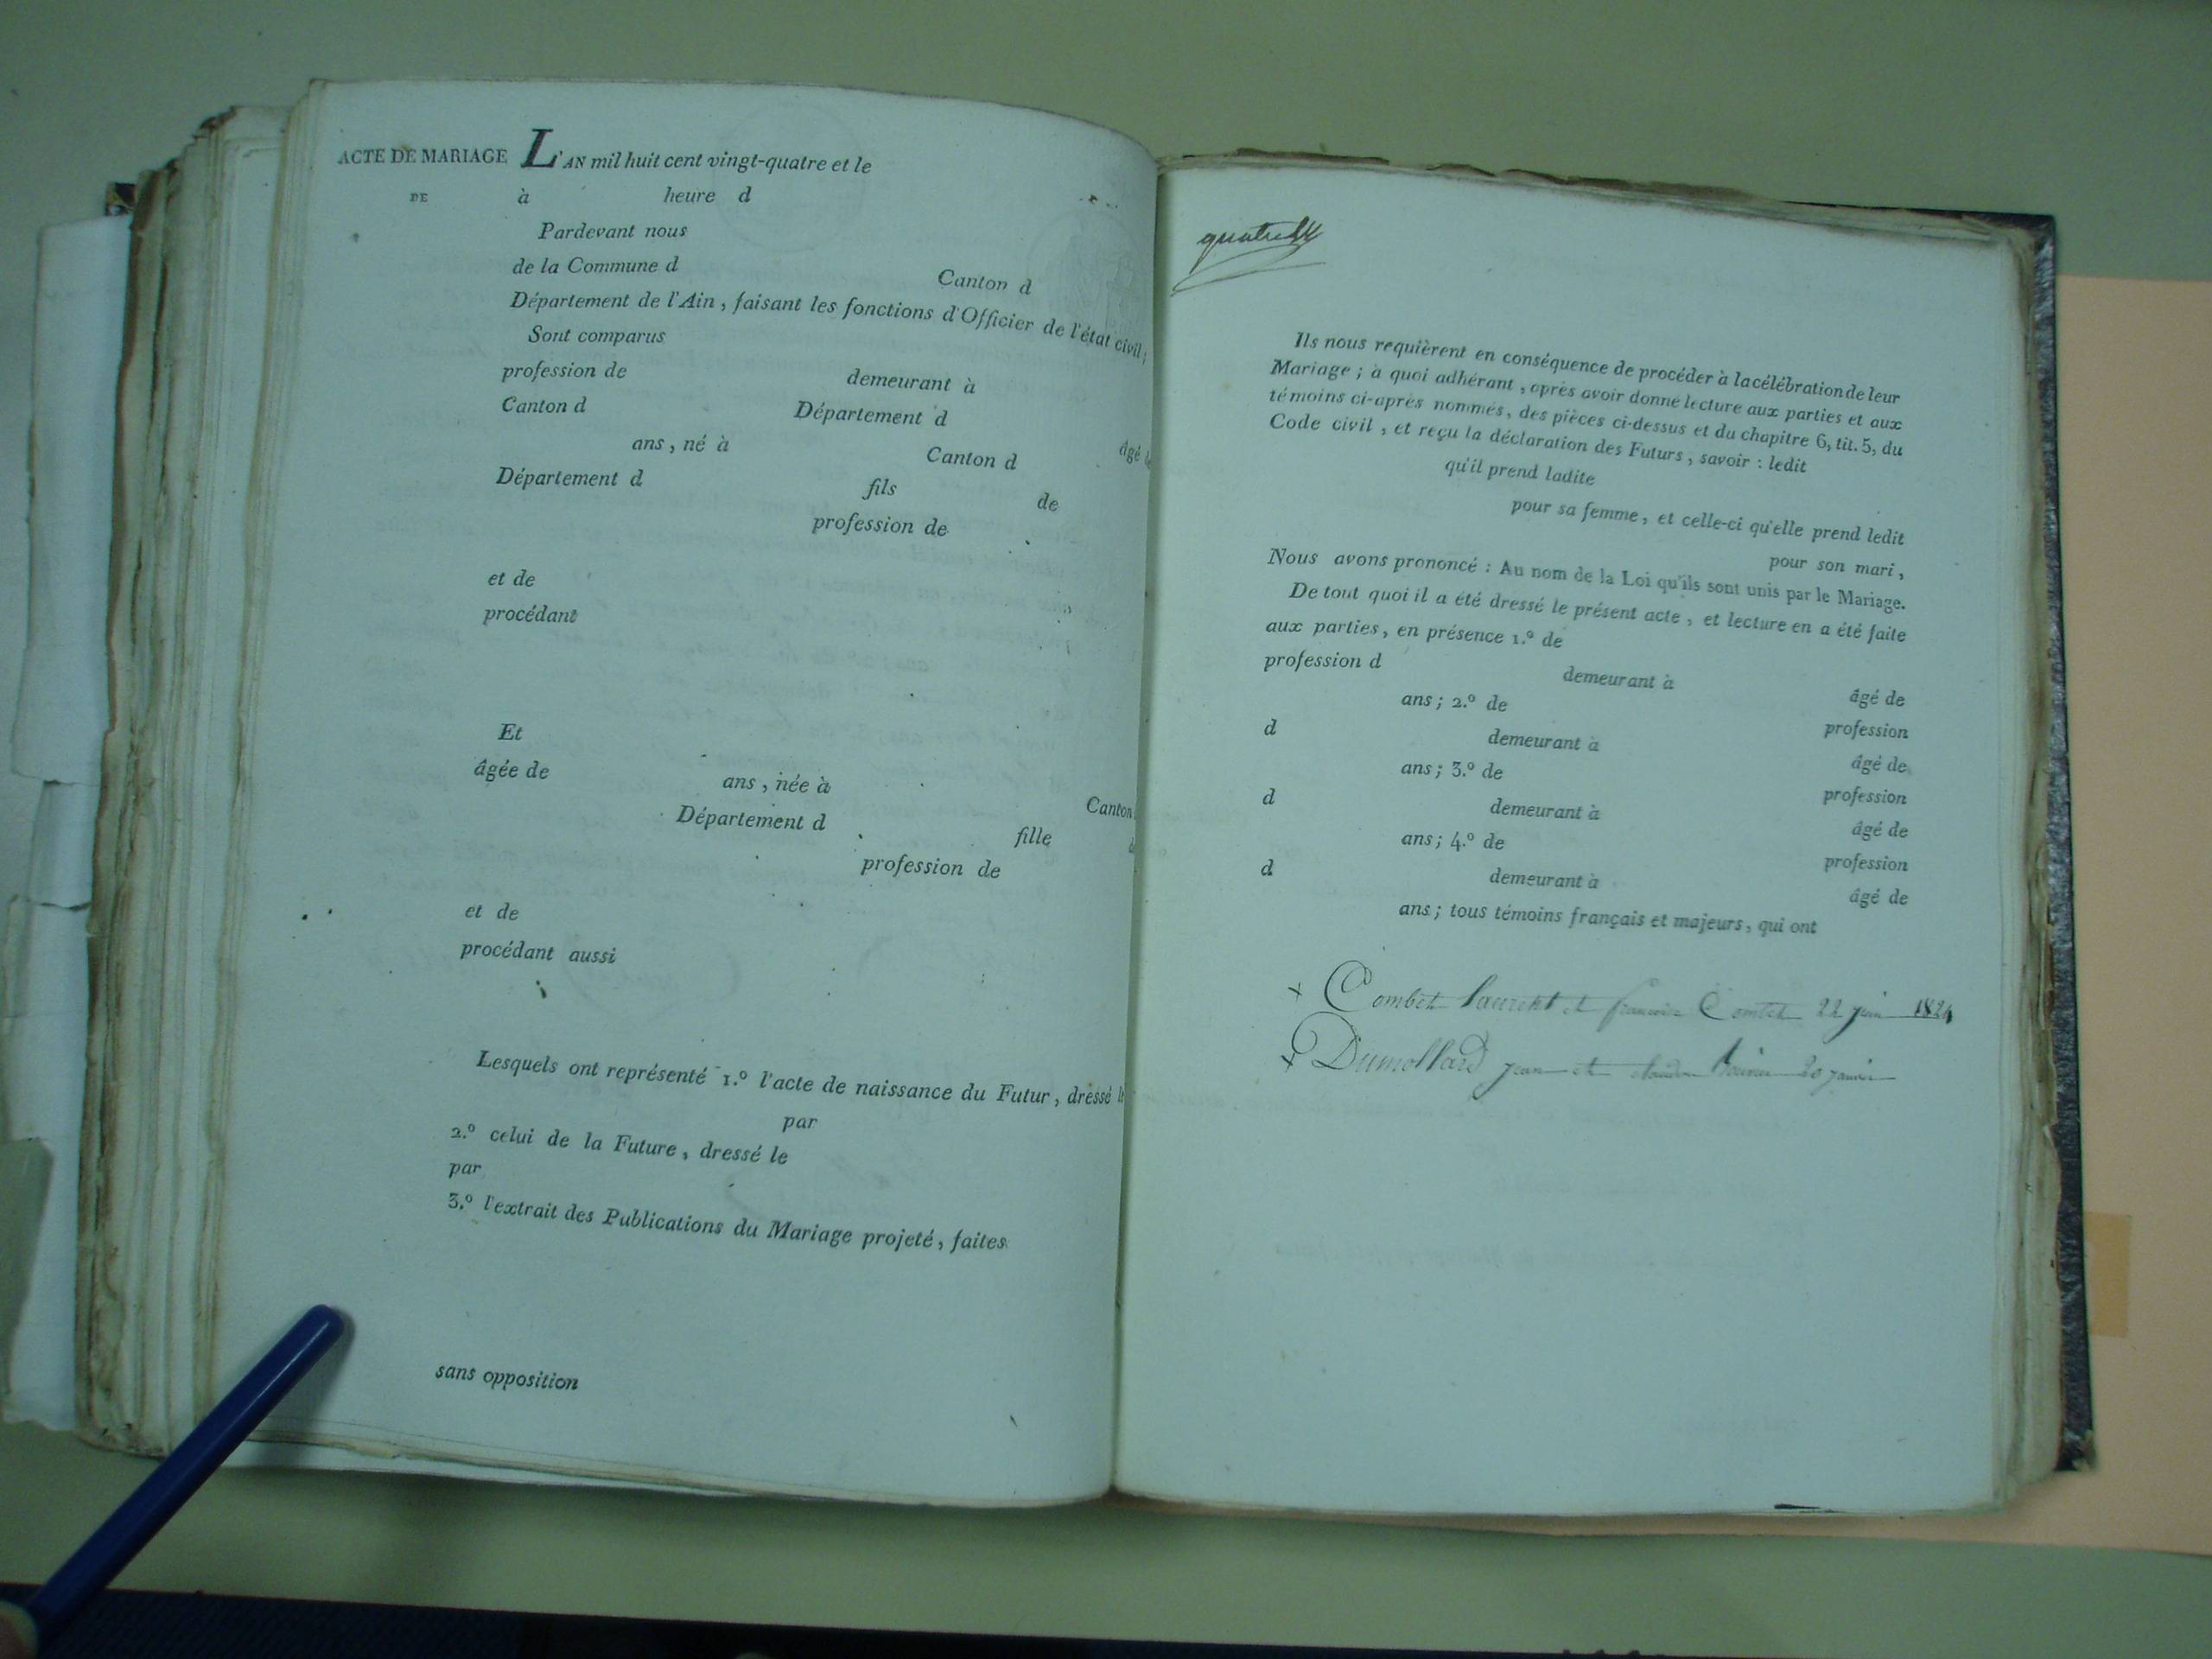 ACTE DE MARIAGE
DE
L'AN mil huit cent vingt-quatre et le
à heure d
Pardevant nous
de la Commune d Canton d
Département de l'Ain, faisant les fonctions d'Officier de l'état civil;
Sont comparus
profession de demeurant à
Canton d Département d âgé
ans, né à Canton d
Département d fils de
profession de
et de
procédant
Et
âgée de ans, née à Canton
Département d fille
profession de
et de
procédant aussi
Lesquels ont représenté 1.º l'acte de naissance du Futur, dressé le
par
2.º celui de la Future, dressé le
par
3.º l'extrait des Publications du Mariage projeté, faites
sans opposition
Ils nous requièrent en conséquence de procéder à la célébration de leur
Mariage; à quoi adhérant, après avoir donné lecture aux parties et aux
témoins ci-après nommés, des pièces ci-dessus et du chapitre 6, tit. 5, du
Code civil, et reçu la déclaration des Futurs, savoir : ledit
qu'il prend ladite
pour sa femme, et celle-ci qu'elle prend ledit
pour son mari,
Nous avons prononcé : Au nom de la Loi qu'ils sont unis par le Mariage.
De tout quoi il a été dressé le présent acte, et lecture en a été faite
aux parties, en présence 1.º de
profession d demeurant à âgé de
ans; 2.º de profession
d demeurant à âgé de
ans; 3.º de profession
d demeurant à âgé de
ans; 4.º de profession
d demeurant à âgé de
ans; tous témoins français et majeurs, qui ont
x Combet Laurent et francoise Combet 22 juin 1824
x Dumollard jean et 20 janvier